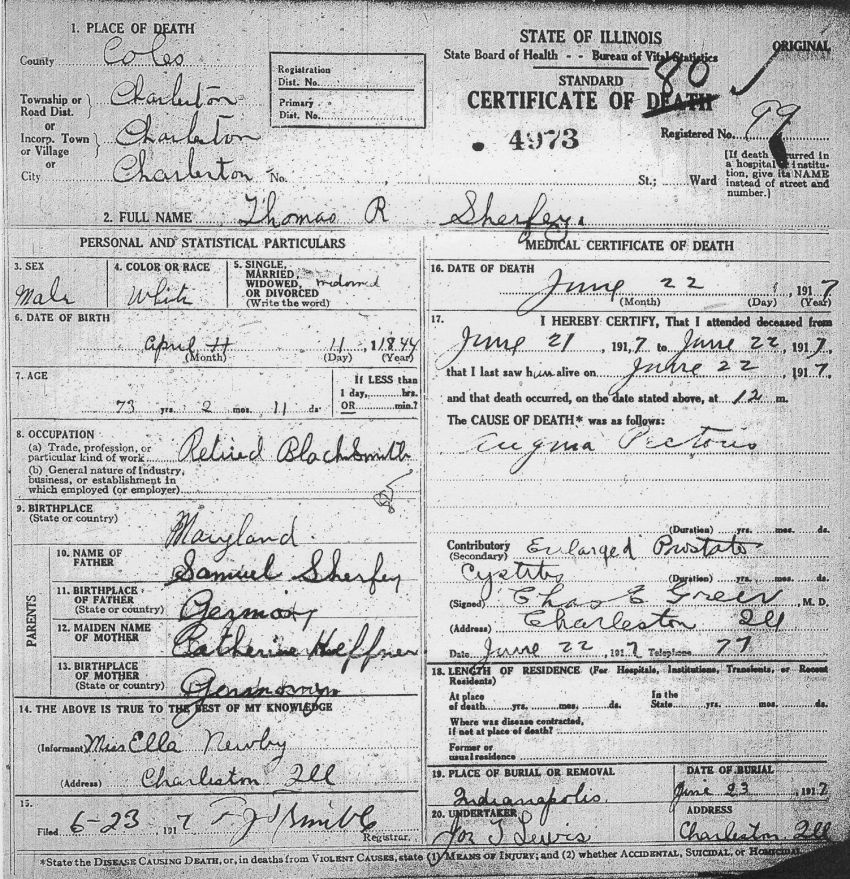 1. PLACE OF DEATH
County Coles
Township or Road Dist. Charleston
or
Incorp. Town or Village Charleston
or
City Charleston No. St.; Ward
Registration Dist. No.
Primary Dist. No.
STATE OF ILLINOIS
State Board of Health - - Bureau of Vital Statistics
ORIGINAL
STANDARD
80
CERTIFICATE OF DEATH
4973
Registered No. 99
[If death occurred in a hospital or institution, give its NAME instead of street and number.]
2. FULL NAME Thomas R Sherfey
PERSONAL AND STATISTICAL PARTICULARS
3. SEX
Male
4. COLOR OR RACE
White
5. SINGLE, MARRIED, WIDOWED, OR DIVORCED (Write the word) widowed
6. DATE OF BIRTH
April 11, 1844
(Month) (Day) (Year)
7. AGE
73 yrs. 2 mos. 11 ds.
If LESS than 1 day, hrs. OR min.?
8. OCCUPATION
(a) Trade, profession, or particular kind of work Retired BlackSmith
(b) General nature of Industry, business, or establishment in which employed (or employer)
9. BIRTHPLACE
(State or country) Maryland
PARENTS
10. NAME OF FATHER Samuel Sherfey
11. BIRTHPLACE OF FATHER (State or country) Germany
12. MAIDEN NAME OF MOTHER Catherine Heffner
13. BIRTHPLACE OF MOTHER (State or country) Germany
14. THE ABOVE IS TRUE TO THE BEST OF MY KNOWLEDGE
(Informant) Miss Ella Newby
(Address) Charleston Ill
15.
Filed 6-23 1917
Registrar.
MEDICAL CERTIFICATE OF DEATH
16. DATE OF DEATH
June 22, 1917
(Month) (Day) (Year)
17. I HEREBY CERTIFY, That I attended deceased from
June 21, 1917, to June 22, 1917,
that I last saw him alive on June 22, 1917,
and that death occurred, on the date stated above, at 12 m.
The CAUSE OF DEATH* was as follows:
Angina Pectoris
(Duration) yrs. mos. ds.
Contributory (Secondary) Enlarged Prostate
Cystitis (Duration) yrs. mos. ds.
(Signed) Chas E Greer, M. D.
(Address) Charleston Ill
Date June 22, 1917 Telephone 77
18. LENGTH OF RESIDENCE (For Hospitals, Institutions, Transients, or Recent Residents)
At place of death yrs. mos. ds. In the State yrs. mos. ds.
Where was disease contracted, if not at place of death?
Former or usual residence
19. PLACE OF BURIAL OR REMOVAL
Indianapolis
DATE OF BURIAL
June 23, 1917
20. UNDERTAKER
Jos T Lewis
ADDRESS
Charleston Ill
*State the DISEASE CAUSING DEATH, or, in deaths from VIOLENT CAUSES, state (1) MEANS OF INJURY; and (2) whether ACCIDENTAL, SUICIDAL, or HOMICIDAL